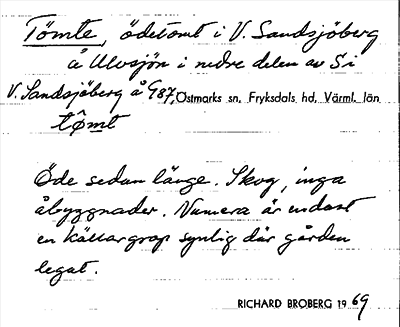 Tömte, ödetomt i V. Sandsjöberg
å Ulvsjön i nedre delen av S i
V. Sandsjöberg å 987, Östmarks sn, Fryksdals hd, Värml. län
tömt
Öde sedan länge. Skog, inga
åbyggnader. Numera är endast
en källargrop synlig där gården
legat.
RICHARD BROBERG 1969